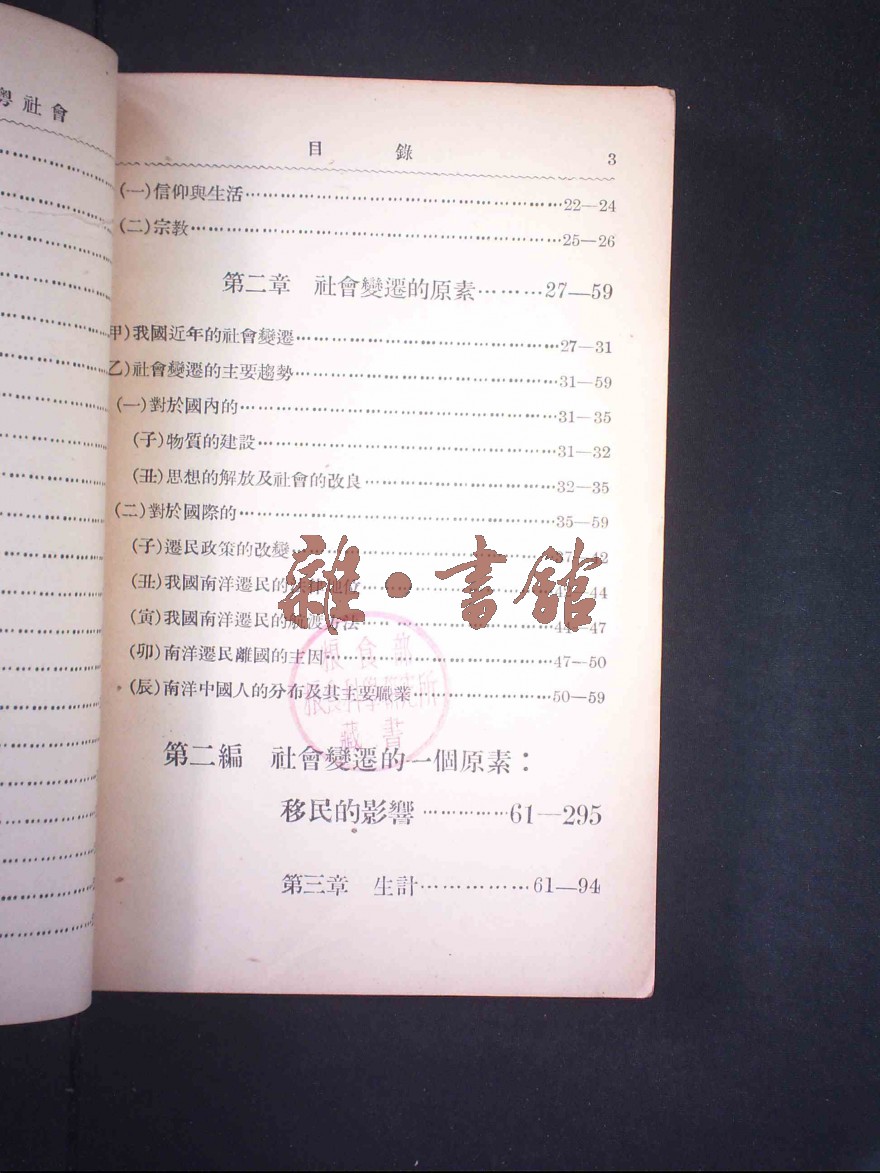 粤社會
目錄 3
(一)信仰與生活………22—24
(二)宗教………25—26
第二章 社會變遷的原素………27—59
甲)我國近年的社會變遷………27—31
乙)社會變遷的主要趨勢………31—59
(一)對於國內的………31—35
(子)物質的建設………31—32
(丑)思想的解放及社會的改良………32—35
(二)對於國際的………35—59
(子)遷民政策的改變………37—42
(丑)我國南洋遷民的法律地位………44
(寅)我國南洋遷民的航渡方法………44—47
(卯)南洋遷民離國的主因………47—50
(辰)南洋中國人的分布及其主要職業………50—59
第二編 社會變遷的一個原素：
移民的影響………61—295
第三章 生計………61—94
雜·書館
糧食部
糧食科學研究所
藏書